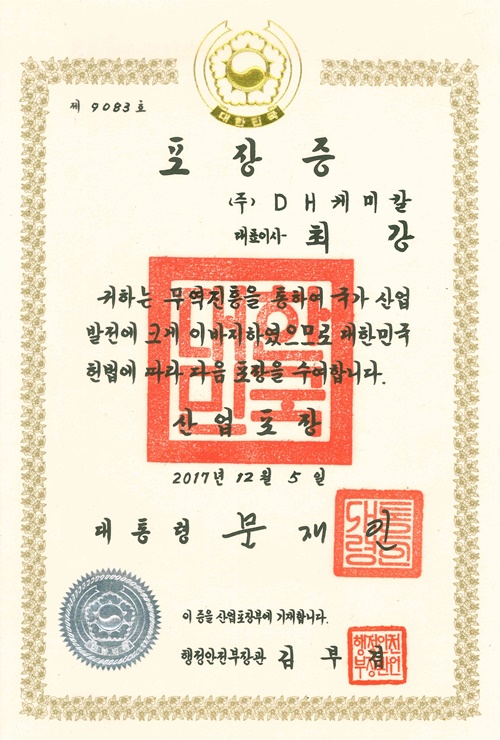 대한민국
제 9083 호
포 장 증
(주) DH케미칼
대표이사 최 강
귀하는 무역진흥을 통하여 국가 산업
발전에 크게 이바지하였으므로 대한민국
헌법에 따라 다음 포장을 수여합니다.
산업포장
2017년 12월 5일
대통령 문재인
이 증을 산업포장부에 기재합니다.
행정안전부장관 김부겸